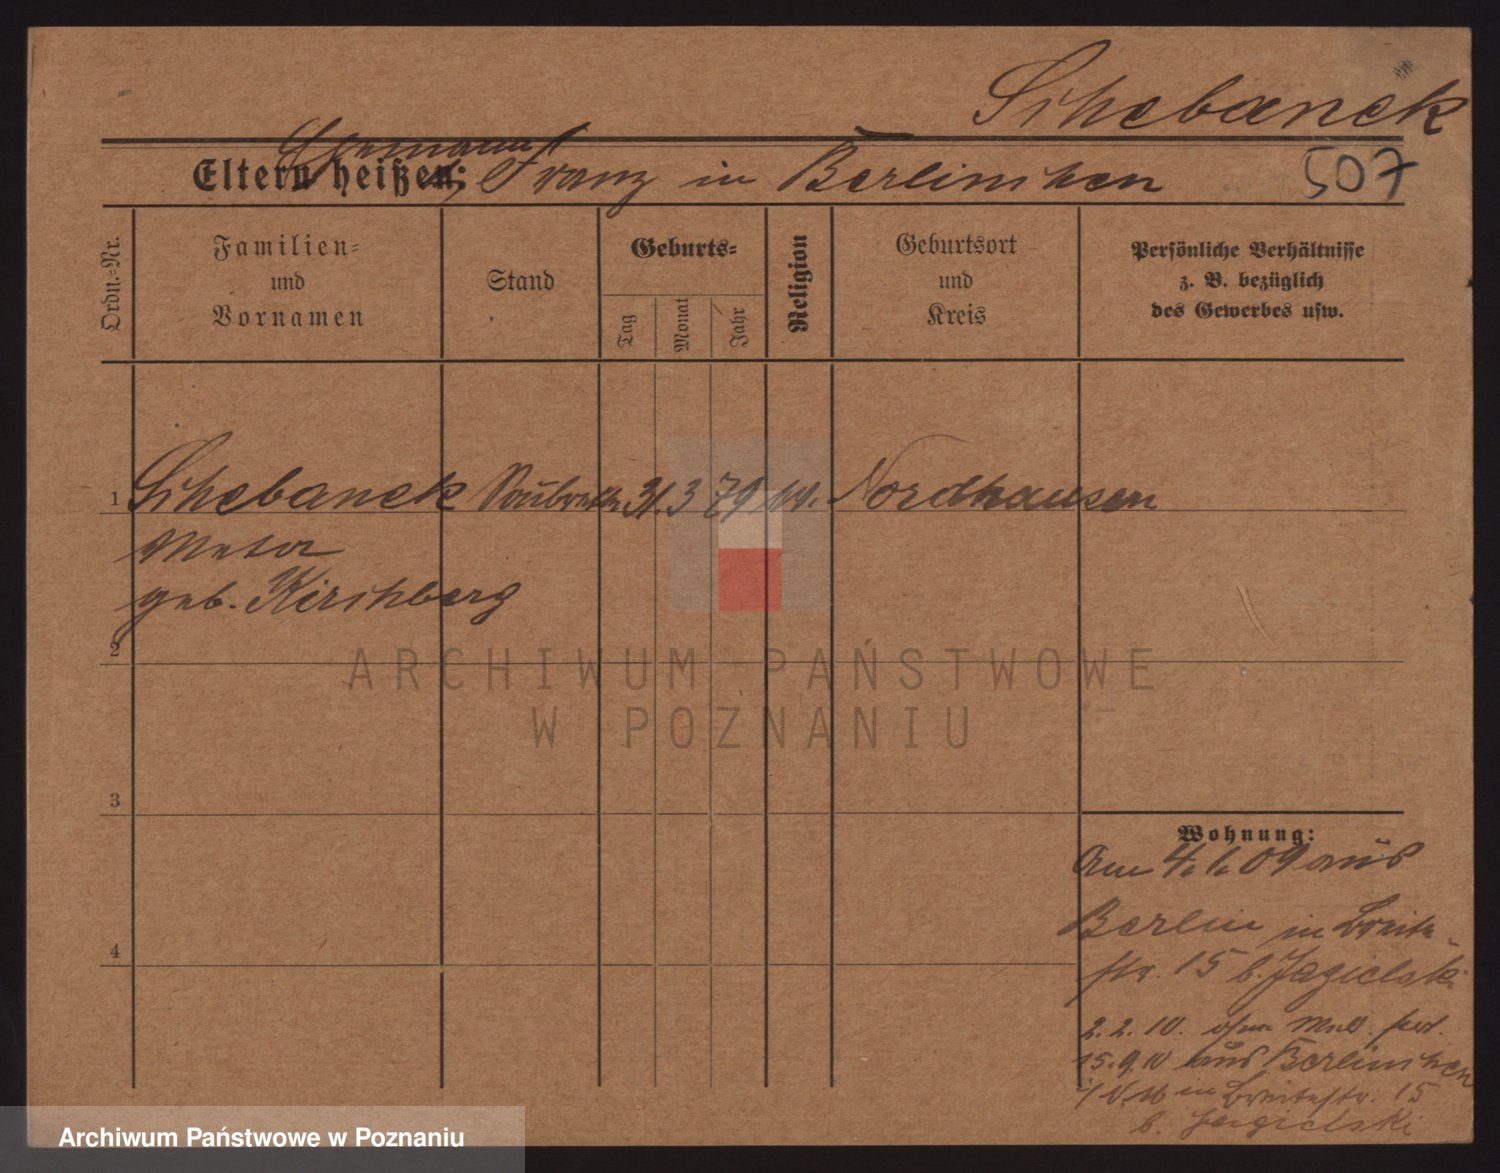 Schebanek
Ehemann
Eltern heißen: Franz in Berlinchen 507
Ordn.-Nr.
Familien-
und
Vornamen
Stand
Geburts-
Tag
Monat
Jahr
Religion
Geburtsort
und
Kreis
Persönliche Verhältnisse
z. B. bezüglich
des Gewerbes usw.
1 Schebanek 31. 3 79 Nordhausen
Meta
geb. Kirschberg
2
3
4
Wohnung:
Am 4. 1. 09 aus
Berlin in Breite-
str. 15 b. Jagielski
2. 2. 10. ohne Meld. fort.
15. 9. 10 aus Berlinchen
in Breitestr. 15
b. Jagielski
ARCHIWUM PAŃSTWOWE
W POZNANIU
Archiwum Państwowe w Poznaniu